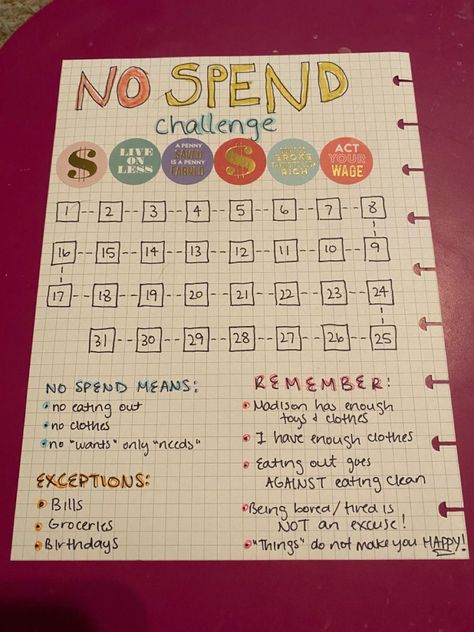 NO SPEND
challenge
$
LIVE ON
LESS
A PENNY
SAVED
IS A PENNY
EARNED
$
BROKE
RICH
ACT
YOUR
WAGE
1 2 3 4 5 6 7 8
16 15 14 13 12 11 10 9
17 18 19 20 21 22 23 24
31 30 29 28 27 26 25
NO SPEND MEANS:
no eating out
no clothes
no "wants" only "needs"
EXCEPTIONS:
Bills
Groceries
Birthdays
REMEMBER:
Madison has enough
toys & clothes
I have enough clothes
Eating out goes
AGAINST eating clean
Being bored/tired is
NOT an excuse!
"Things" do not make you HAPPY!